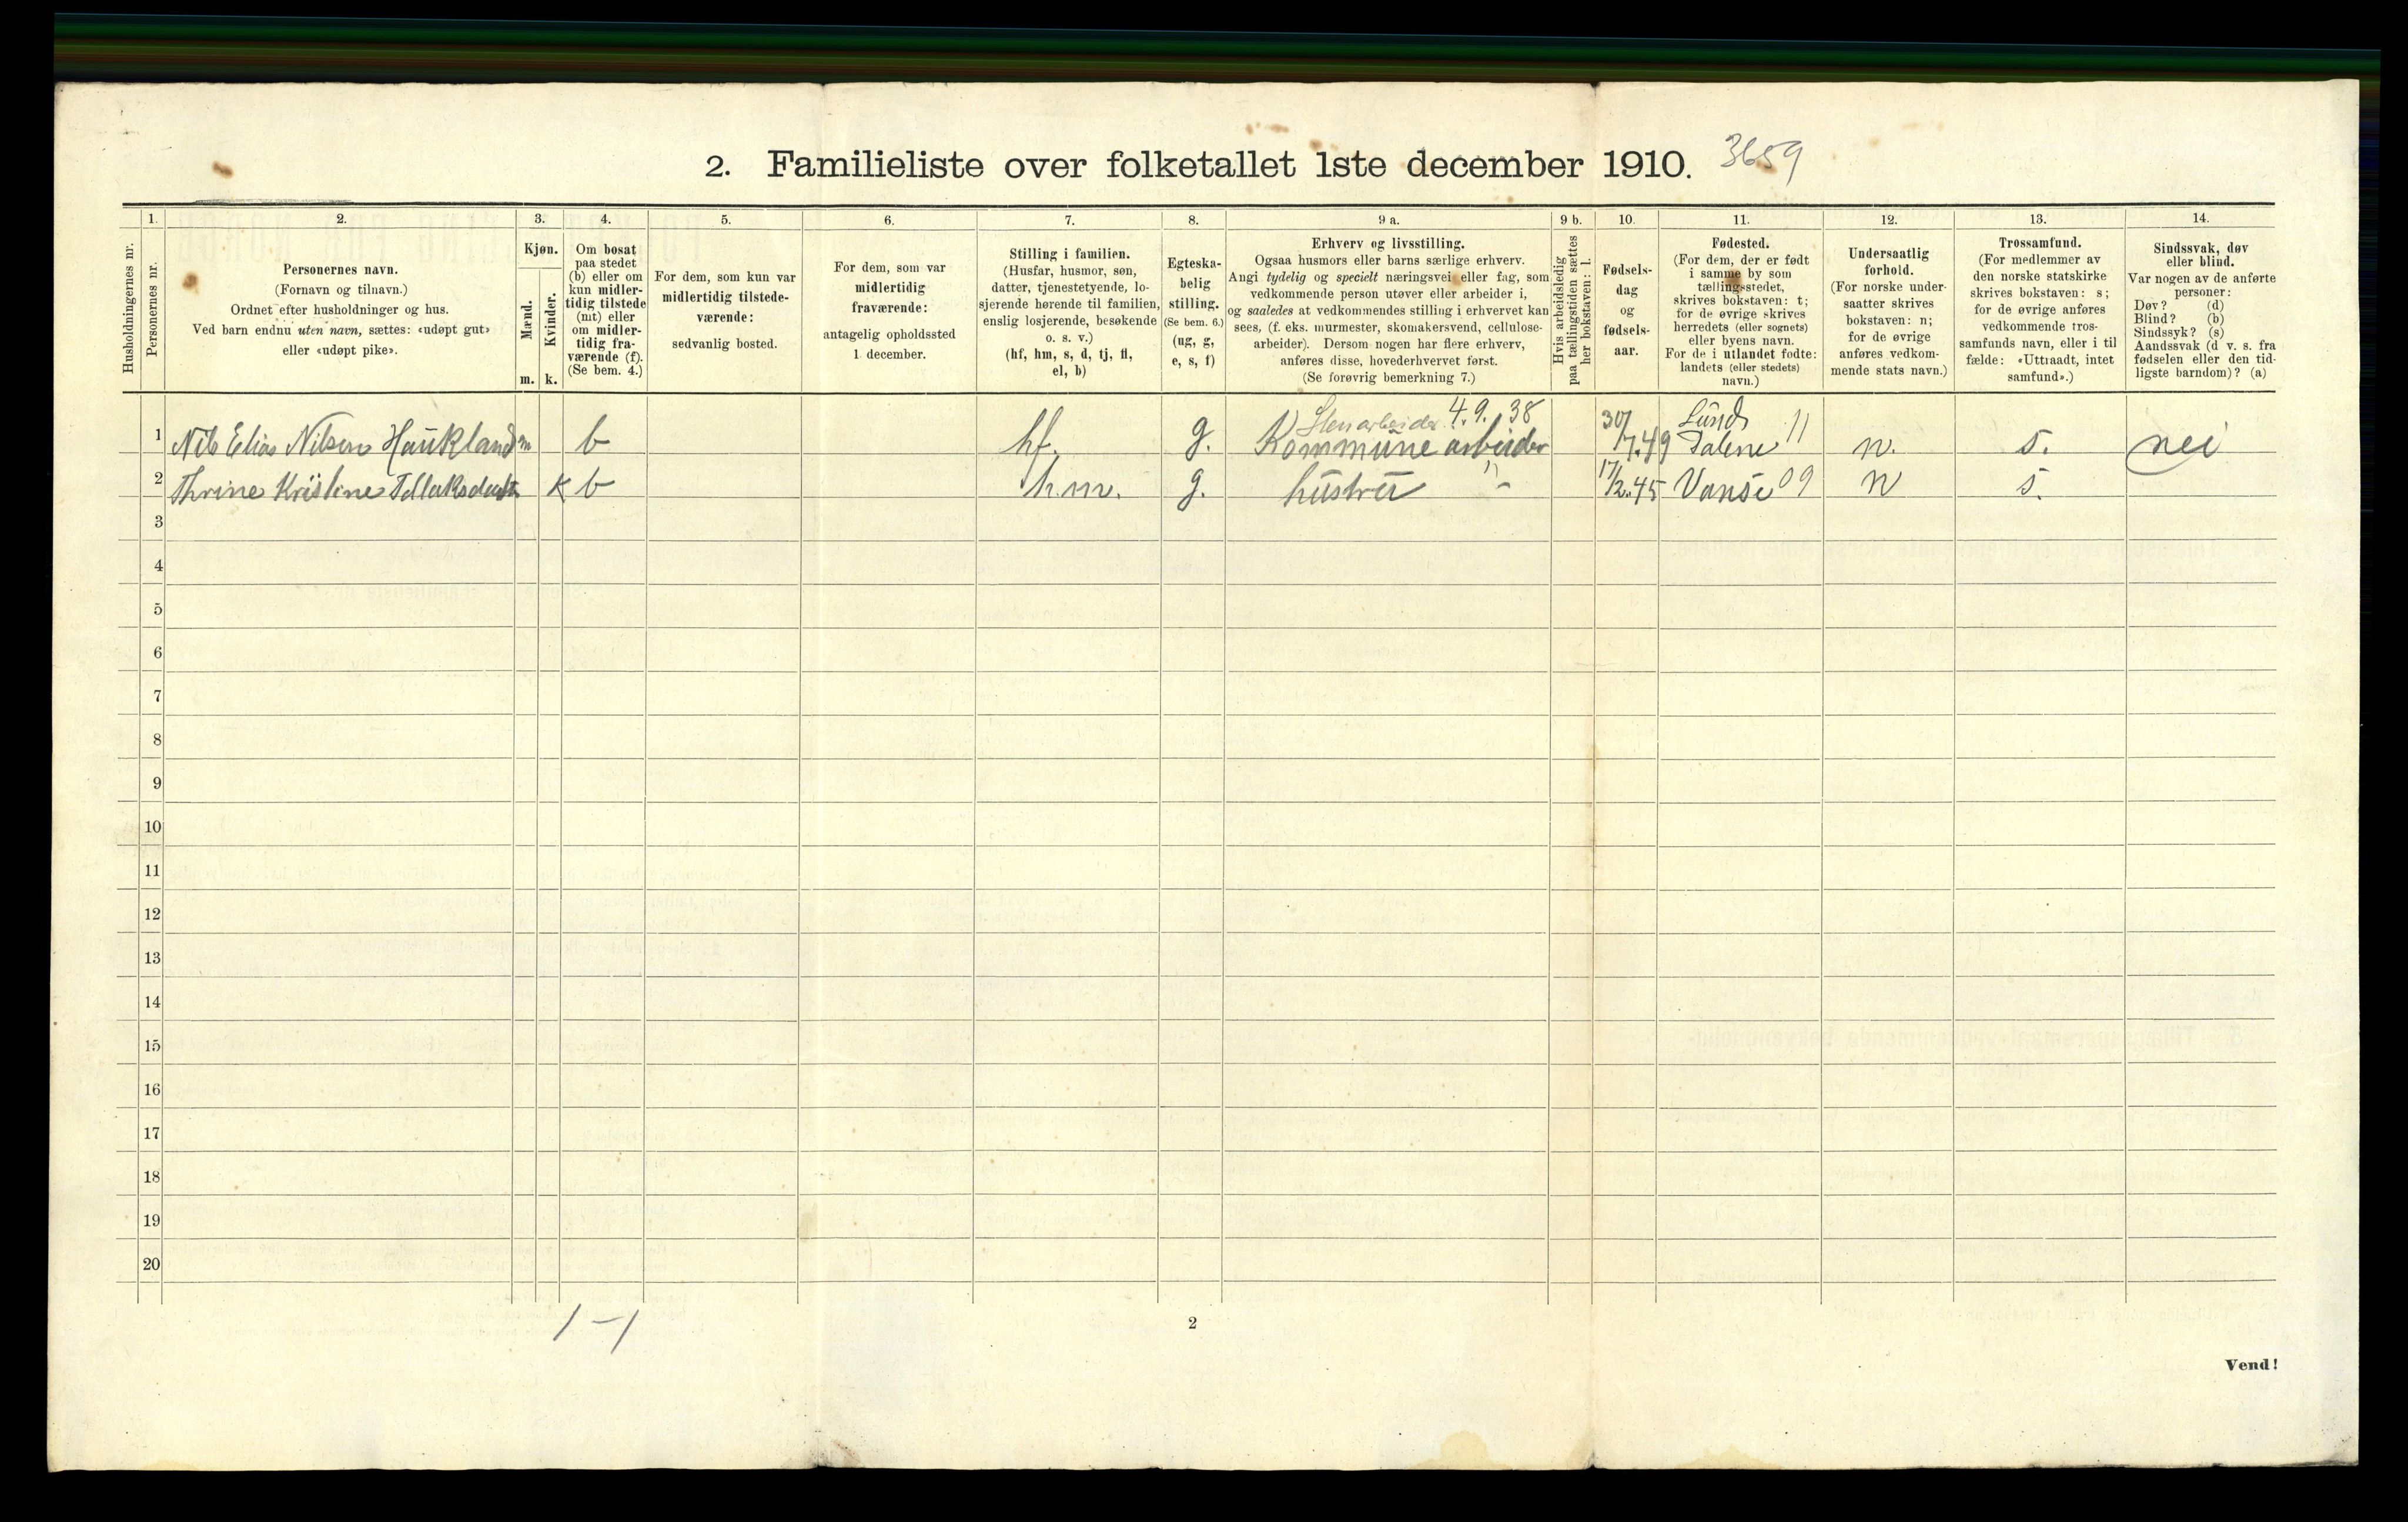 2. Familieliste over folketallet 1ste december 1910. 3659
1. 2. 3. 4. 5. 6. 7. 8. 9 a. 9 b. 10. 11. 12. 13. 14.
Husholdningernes nr.
Personernes nr.
Personernes navn.
(Fornavn og tilnavn.)
Ordnet efter husholdninger og hus.
Ved barn endnu uten navn, sættes: «udøpt gut»
eller «udøpt pike».
Kjøn.
Mænd.
Kvinder.
m. k.
Om bosat
paa stedet
(b) eller om
kun midler-
tidig tilstede
(mt) eller
om midler-
tidig fra-
værende (f).
(Se bem. 4.)
For dem, som kun var
midlertidig tilstede-
værende:
sedvanlig bosted.
For dem, som var
midlertidig
fraværende:
antagelig opholdssted
1 december.
Stilling i familien.
(Husfar, husmor, søn,
datter, tjenestetyende, lo-
sjerende hørende til familien,
enslig losjerende, besøkende
o. s. v.)
(hf, hm, s, d, tj, fl,
el, b)
Egteska-
belig
stilling.
(Se bem. 6.)
(ug, g,
e, s, f)
Erhverv og livsstilling.
Ogsaa husmors eller barns særlige erhverv.
Angi tydelig og specielt næringsvei eller fag, som
vedkommende person utøver eller arbeider i,
og saaledes at vedkommendes stilling i erhvervet kan
sees, (f. eks. murmester, skomakersvend, cellulose-
arbeider). Dersom nogen har flere erhverv,
anføres disse, hovederhvervet først.
(Se forøvrig bemerkning 7.)
Hvis arbeidsledig
paa tællingstiden sættes
her bokstaven: l.
Fødsels-
dag
og
fødsels-
aar.
Fødested.
(For dem, der er født
i samme by som
tællingsstedet,
skrives bokstaven: t;
for de øvrige skrives
herredets (eller sognets)
eller byens navn.
For de i utlandet fødte:
landets (eller stedets)
navn.)
Undersaatlig
forhold.
(For norske under-
saatter skrives
bokstaven: n;
for de øvrige
anføres vedkom-
mende stats navn.)
Trossamfund.
(For medlemmer av
den norske statskirke
skrives bokstaven: s;
for de øvrige anføres
vedkommende tros-
samfunds navn, eller i til
fælde: «Uttraadt, intet
samfund».)
Sindssvak, døv
eller blind.
Var nogen av de anførte
personer:
Døv? (d)
Blind? (b)
Sindssyk? (s)
Aandssvak (d v. s. fra
fødselen eller den tid-
ligste barndom)? (a)
Stenarbeider 4.9.38 Lund
1 Nils Elias Nilsen Haukland m b hf. g. Kommune arbeider 30/7.49 Dalene 11 n. s. nei
2 Thrine Kristine Tollaksdatt k b h.m. g. hustru "- 17/2.45 Vanse 09 n s.
3
4
5
6
7
8
9
10
11
12
13
14
15
16
17
18
19
20
1-1
2
Vend!